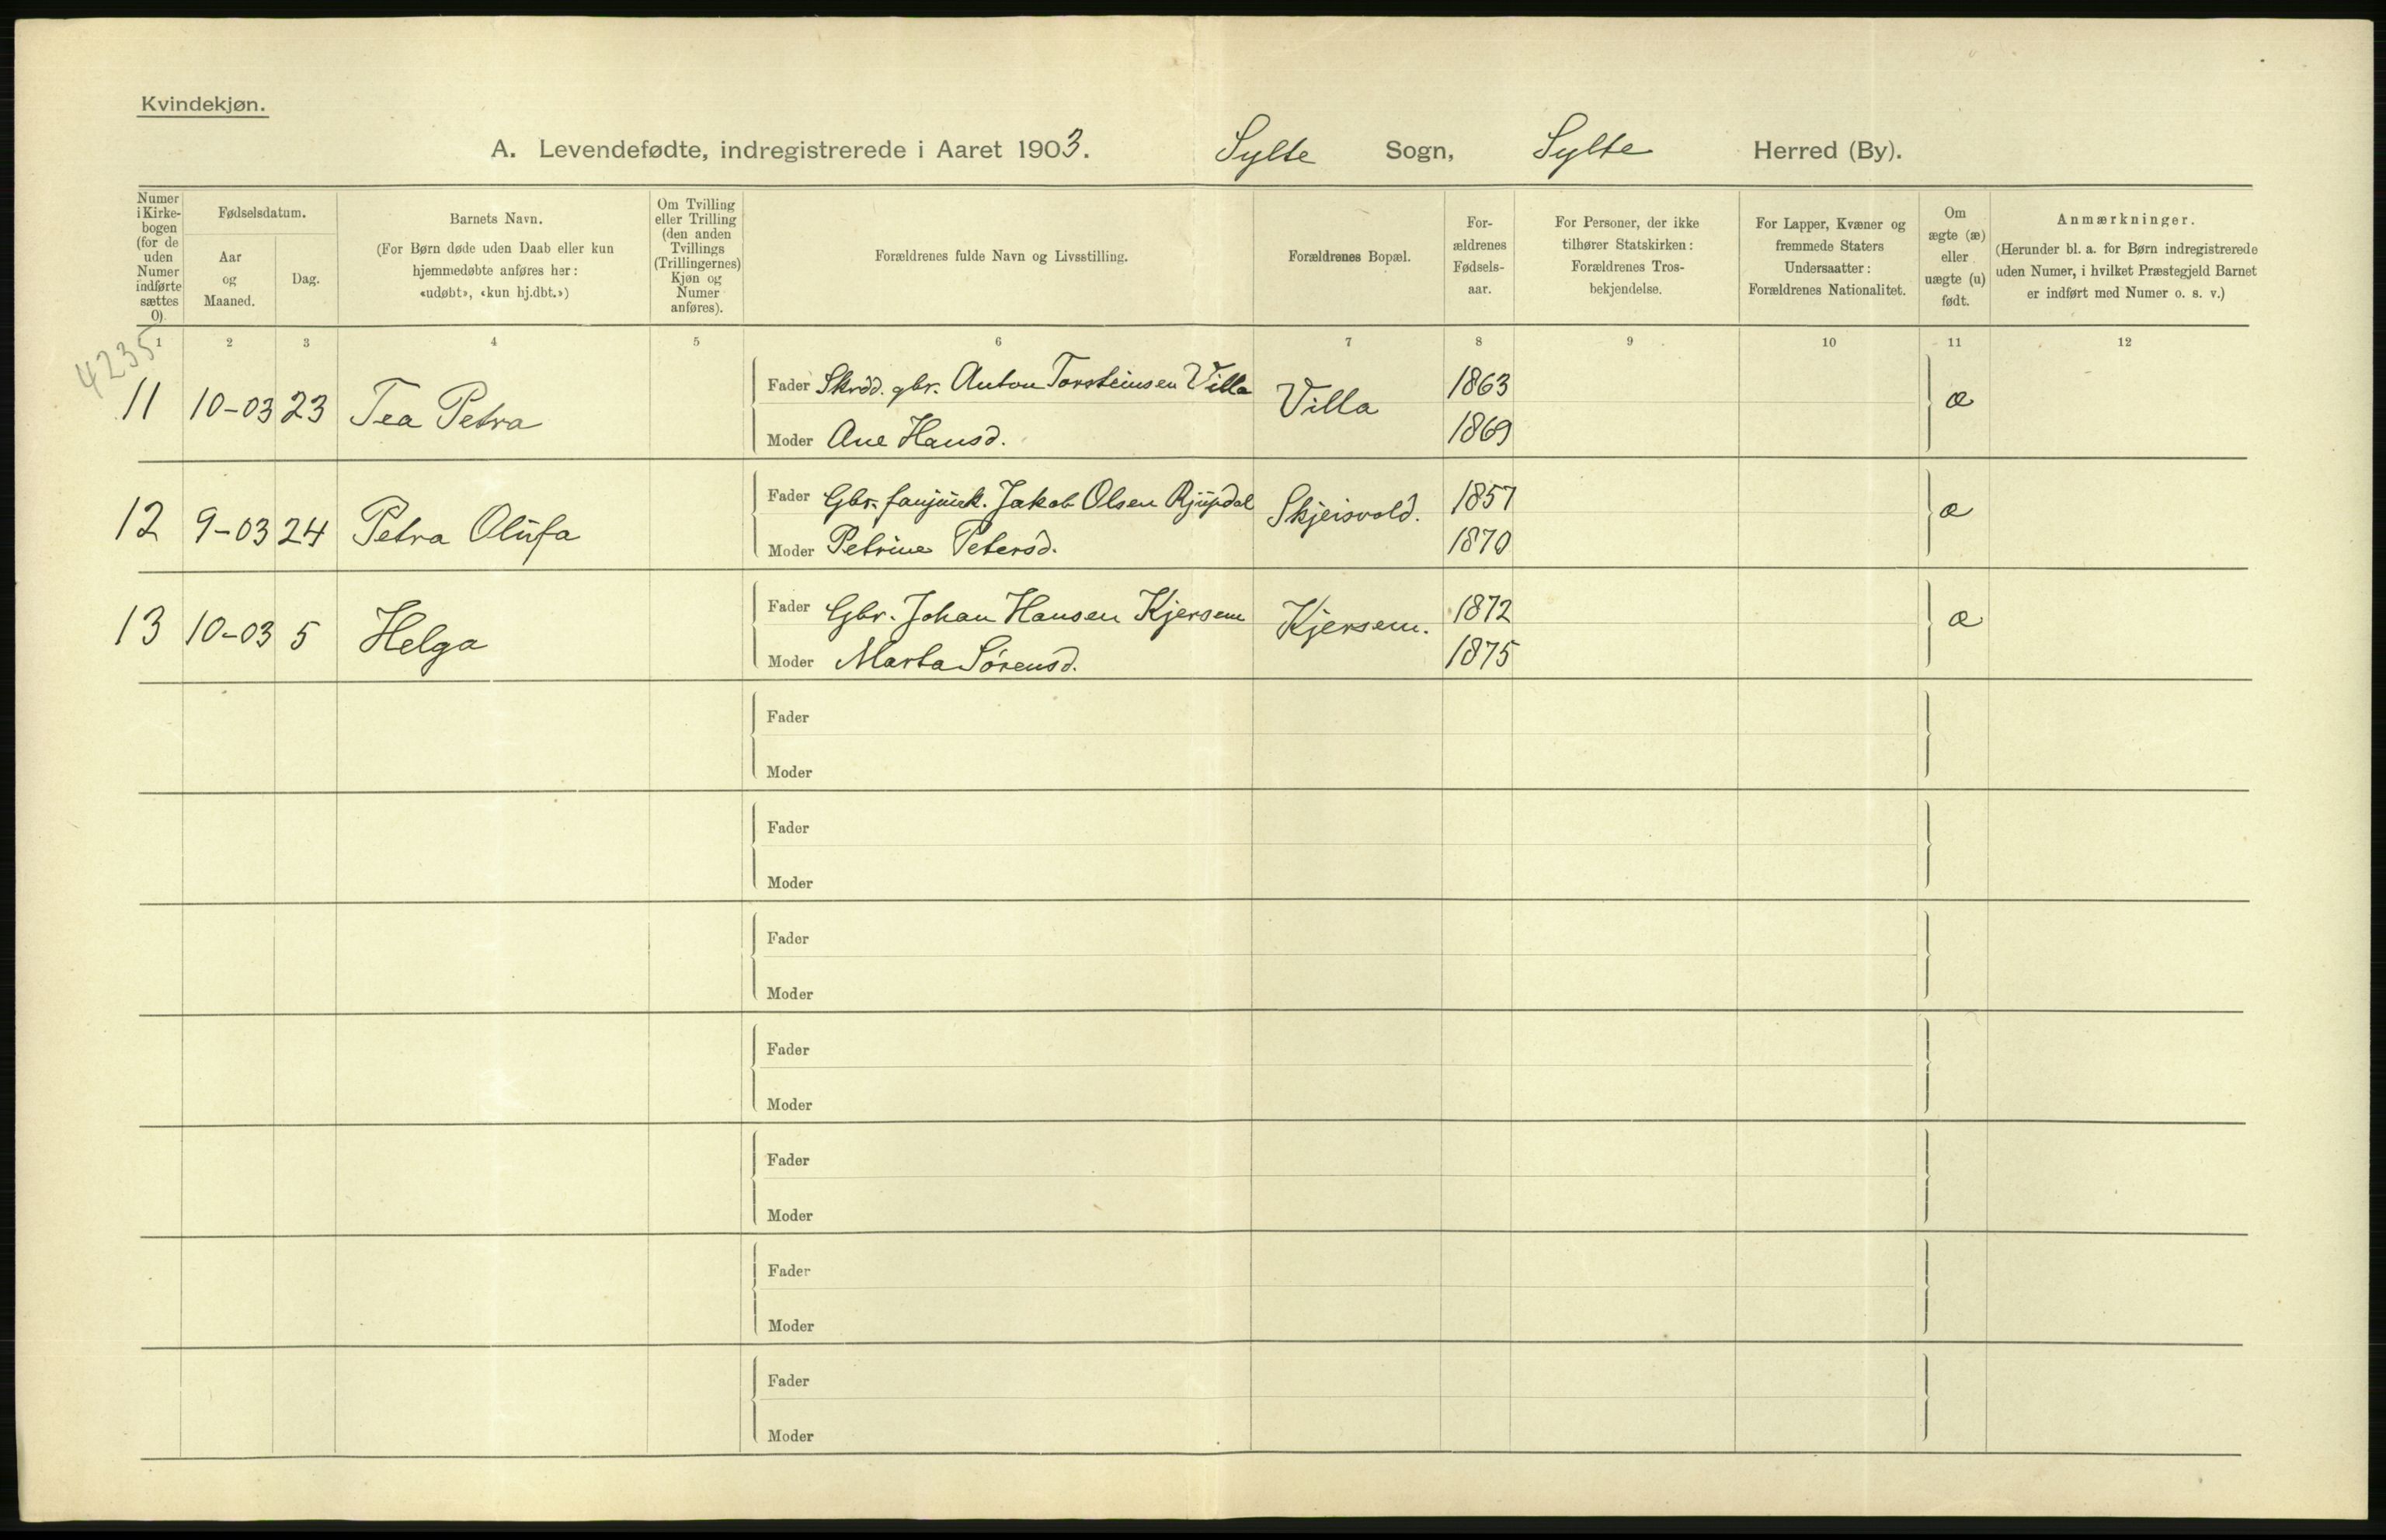 Kvindekjøn.
A. Levendefødte, indregistrerede i Aaret 1903. Sylte Sogn, Sylte Herred (By).
Numer i Kirke- bogen (for de uden Numer indførte sættes 0).
Fødselsdatum.
Aar og Maaned.
Dag.
Barnets Navn.
(For Børn døde uden Daab eller kun
hjemmedøbte anføres her:
«udøbt», «kun hj.dbt.»)
Om Tvilling
eller Trilling
(den anden
Tvillings
(Trillingernes)
Kjøn og
Numer
anføres).
Forældrenes fulde Navn og Livsstilling.
Forældrenes Bopæl.
For-
ældrenes
Fødsels-
aar.
For Personer, der ikke
tilhører Statskirken:
Forældrenes Tros-
bekjendelse.
For Lapper, Kvæner og
fremmede Staters
Undersaatter:
Forældrenes Nationalitet.
Om
ægte (æ)
eller
uægte (u)
født.
Anmærkninger.
(Herunder bl. a. for Børn indregistrerede
uden Numer, i hvilket Præstegjeld Barnet
er indført med Numer o. s. v.)
1 2 3 4 5 6 7 8 9 10 11 12
4235
11 10-03 23 Tea Petra Fader Skrdd. gbr. Anton Torsteinsen Villa Villa 1863 æ
Moder Ane Hansd. 1869
12 9-03 24 Petra Olufa Fader Gbr. Jakob Olsen Skjeisvold. 1857 æ
Moder Petrine Petersd. 1870
13 10-03 5 Helga Fader Gbr. Johan Hansen Kjersem Kjersem. 1872 æ
Moder Marta Sørensd. 1875
Fader
Moder
Fader
Moder
Fader
Moder
Fader
Moder
Fader
Moder
Fader
Moder
Fader
Moder